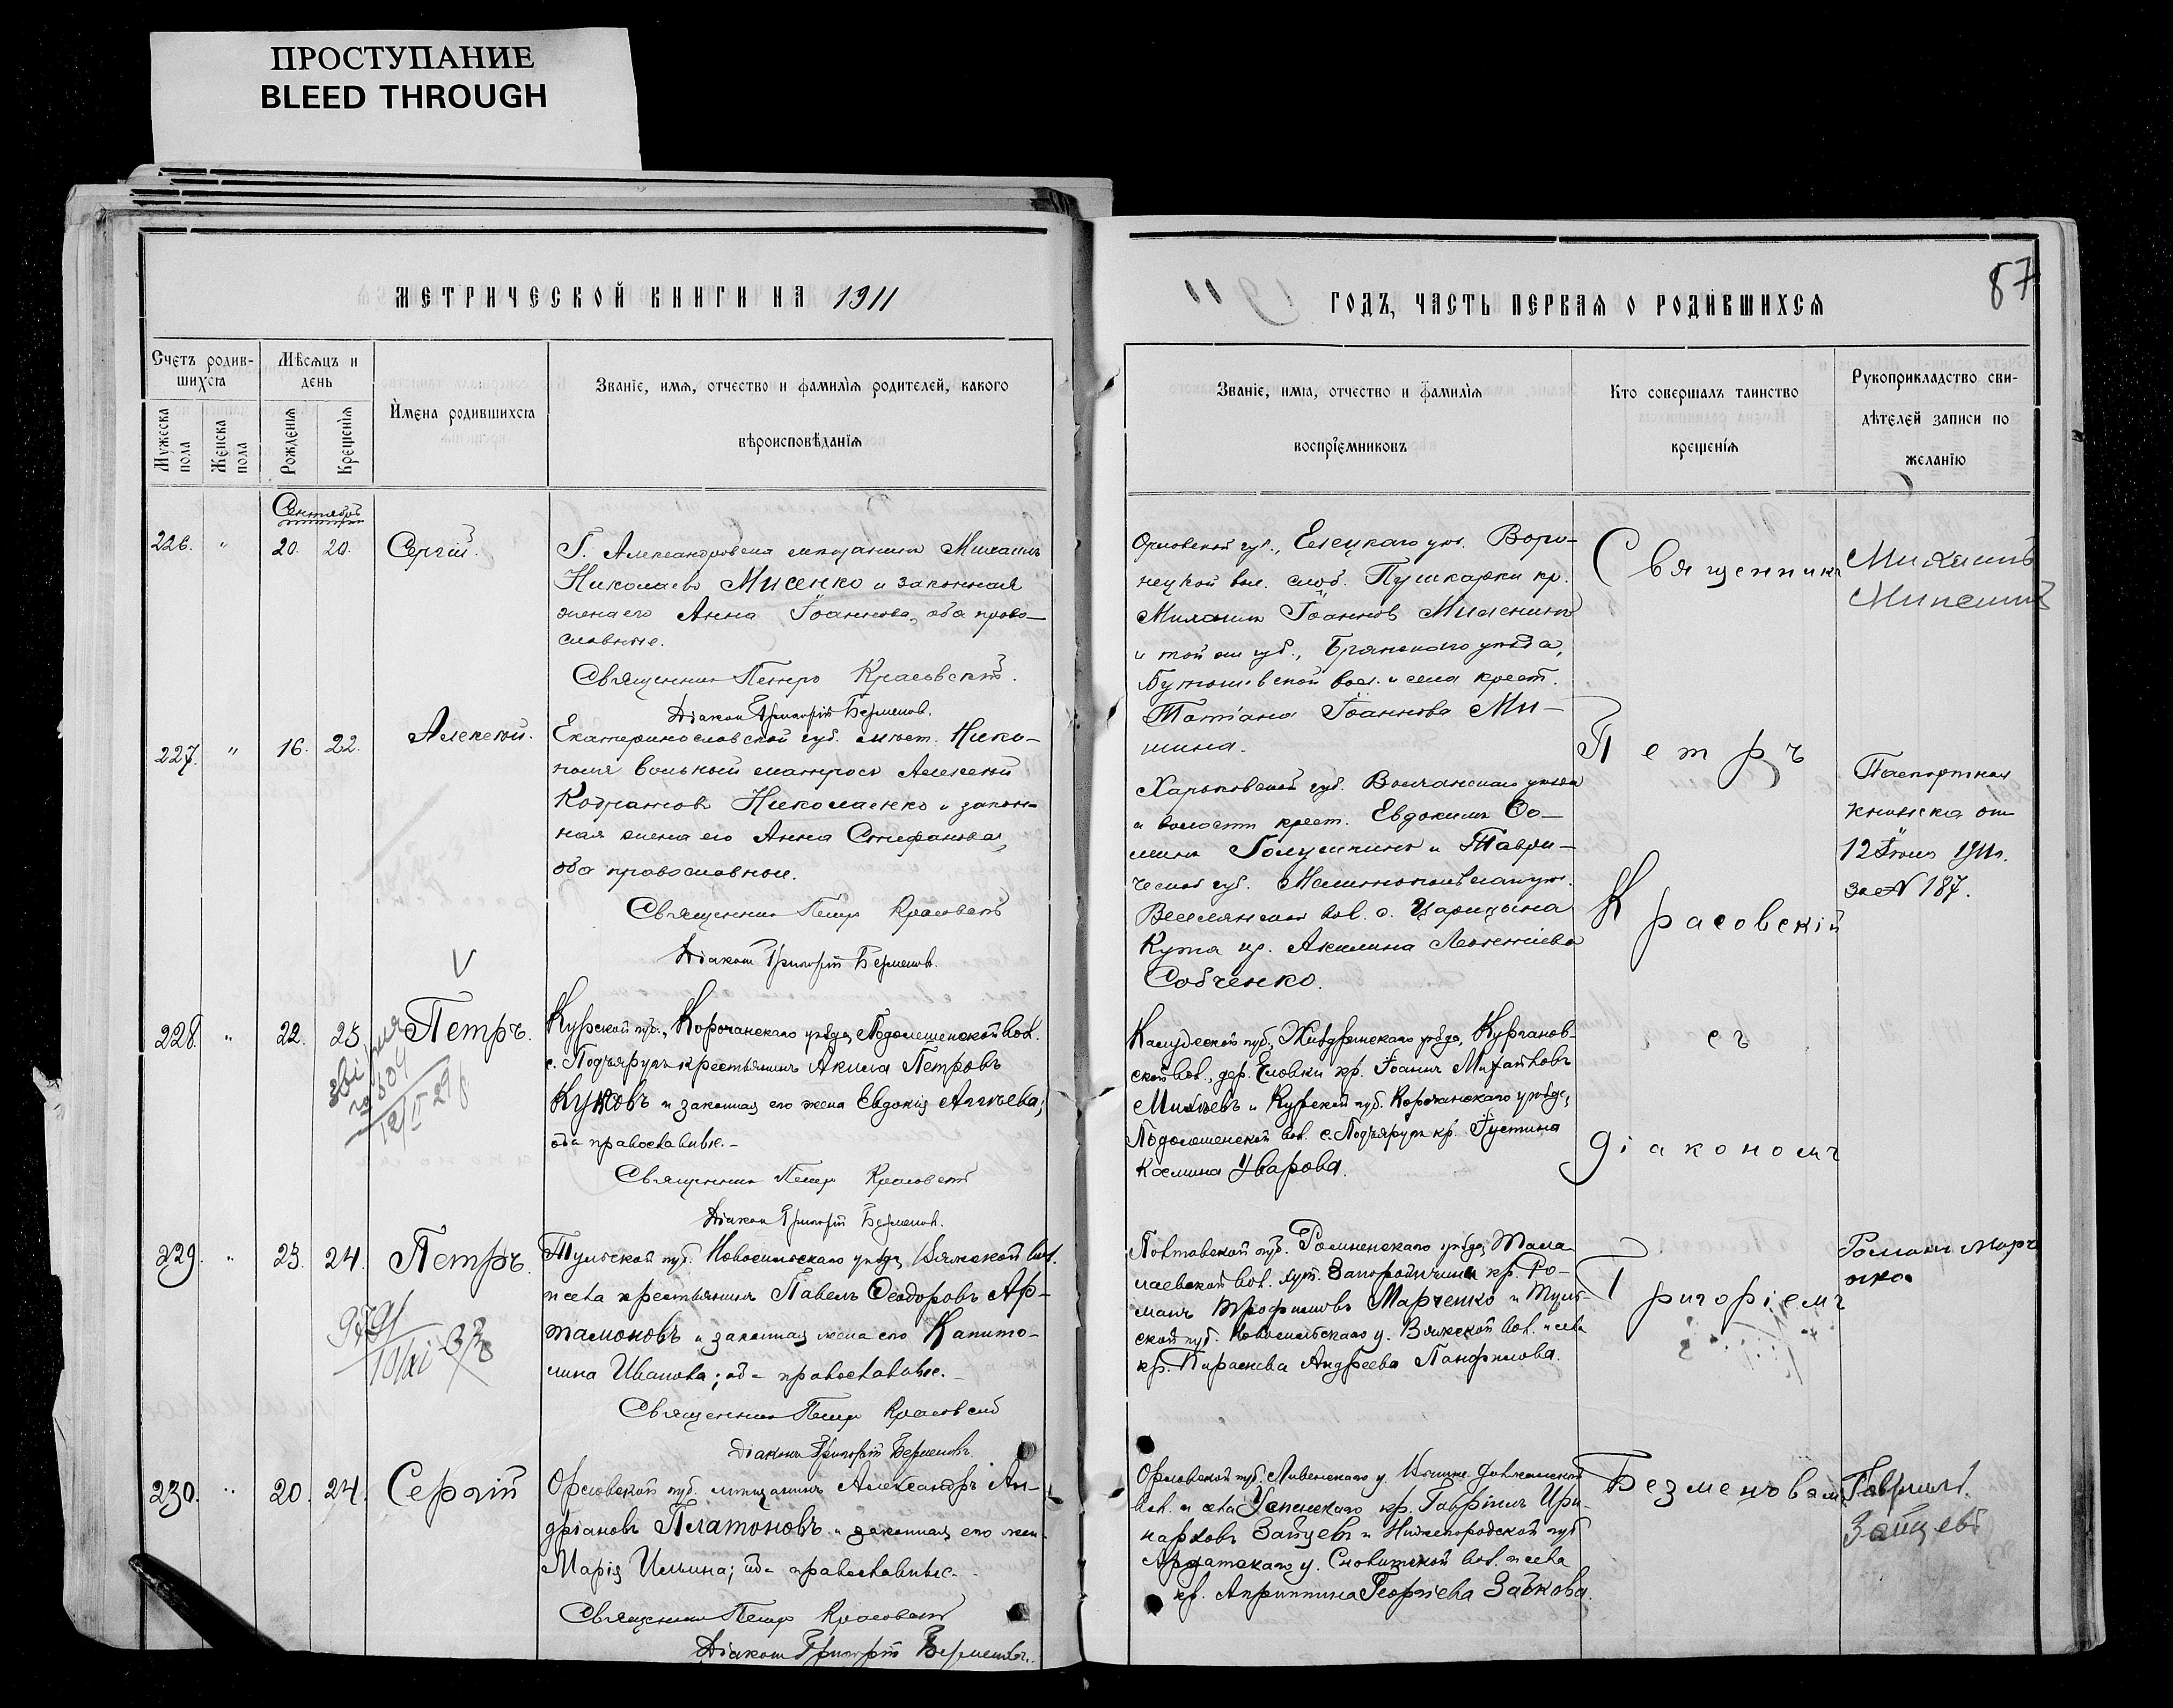 ПРОСТУПАНИЕ
BLEED THROUGH
МЕТРИЧЕСКОЙ КНИГИ НА 1911
Счетъ родив-
шихся
Мѣсяцъ и
день
Мужеска
пола
Женска
пола
Рожденія
Крещенія
Имена родившихся
Званіе, имя, отчество и фамилія родителей, какого
вѣроисповѣданія
Сентябрь
226. " 20. 20. Сергій.
Г. Александровска мѣщанинъ Михаилъ
Николаевъ Мисенко и законная
жена его Анна Іоаннова, оба право-
славные.
Священникъ Петръ Красовскій.
Діаконъ Григорій Безменовъ.
227. " 16. 22. Алексѣй.
Екатеринославской губ. мѣст. Нико-
поля вольный матросъ Алексѣй
Николаенко и закон-
ная жена его Анна Стефанова,
оба православные.
Священникъ Петръ Красовскій
Діаконъ Григорій Безменовъ.
228. " 22. 23. Петръ.
Курской губ., Корочанскаго уѣзда, вол.
с. Подъяругъ крестьянинъ Акила Петровъ
и законная его жена Евдокія
оба православные.-
Священникъ Петръ Красовскій
Діаконъ Григорій Безменовъ.
229. " 23. 24. Петръ.
Тульской губ. Новосильскаго уѣзда, Вяжской вол.
и села крестьянинъ Павелъ Ѳеодоровъ Ар-
тамоновъ и законная жена его Капито-
лина Иванова; оба православные.-
Священникъ Петръ Красовскій
Діаконъ Григорій Безменовъ
230. " 20. 24. Сергій
Орловской губ. мѣщанинъ Александръ Ан-
дріановъ Платоновъ и законная его жена
Марія Ильина; оба православные.-
Священникъ Петръ Красовскій
Діаконъ Григорій Безменовъ.
87
1911 ГОДЪ, ЧАСТЬ ПЕРВАЯ О РОДИВШИХСЯ
Званіе, имя, отчество и фамилія
воспріемниковъ
Кто совершалъ таинство
крещенія
Рукоприкладство сви-
дѣтелей записи по
желанію
Орловской губ., Елецкаго уѣз. Воро-
нецкой вол. слоб. Пушкарки кр.
Михаилъ Іоанновъ
и той же губ., Брянскаго уѣзда,
вол. и села крест.
Татіана Іоаннова Ми-
шина.
Харьковской губ. Волчанскаго уѣзда
и волости крест. Евдокимъ Ѳо-
минъ и Таври-
ческой губ. Мелитопольскаго уѣз.
Веселянской вол. с. Царицына
Кута кр. Акилина Леонтіева
Собченко.
Калужской губ., Жиздринскаго уѣзда, Курганов-
ской вол., дер. Еловки кр. Іоаннъ Михайловъ
и Курской губ. Корочанскаго уѣзда,
вол. с. Подъяругъ кр. Іустина
Космина Уварова.
Полтавской губ. Роменскаго уѣзда, Тала-
лаевской вол. хут. кр. Ро-
манъ Трофимовъ Марченко и Туль-
ской губ. Новосильскаго у. Вяжской вол. и села
кр. Параскева Андреева Панфилова.
Орловской губ. Ливенскаго у.
вол. и села Успенскаго кр. Гавріилъ Ири-
нарховъ Зайцевъ и Нижегородской губ
Ардатскаго у. вол. и села
кр. Агриппина Георгіева Зайкова.
Священникъ
Петръ
Красовскій
съ
діакономъ
Григоріемъ
Безменовымъ
Михаилъ
Паспортная
книжка отъ
12 Іюля 1911 г.
за № 187.
Романъ Марч
енко
Гавриилъ
Зайцевъ